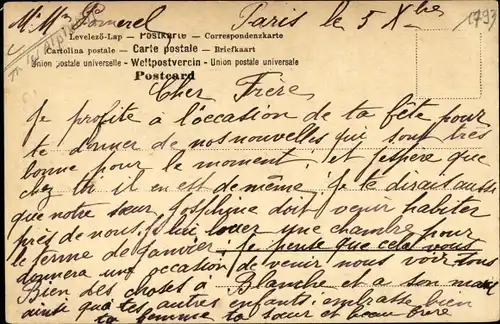 Mr Mme Pomerel Paris le 5 Xbre
1793
Levelező-Lap — POSTKARTE — Correspondenzkarte
Cartolina postale — Carte postale — Briefkaart
Union postale universelle — Weltpostverein — Union postale universale
Postcard
Cher Frère
Je profite à l'occasion de ta fête pour
te donner de nos nouvelles qui sont très
bonne pour le moment, et j'espère que
chez toi il en est de même; je te dirais aussi
que notre sœur Joséphine doit venir habiter
près de nous, je lui louer une chambre pour
le terme de Janvier; je pense que cela vous
donnera une occasion de venir nous voir tous
Bien des choses à Blanche et a son mari
ainsi qua tes autres enfants; embrasse bien
ta femme ta sœur et beau frère